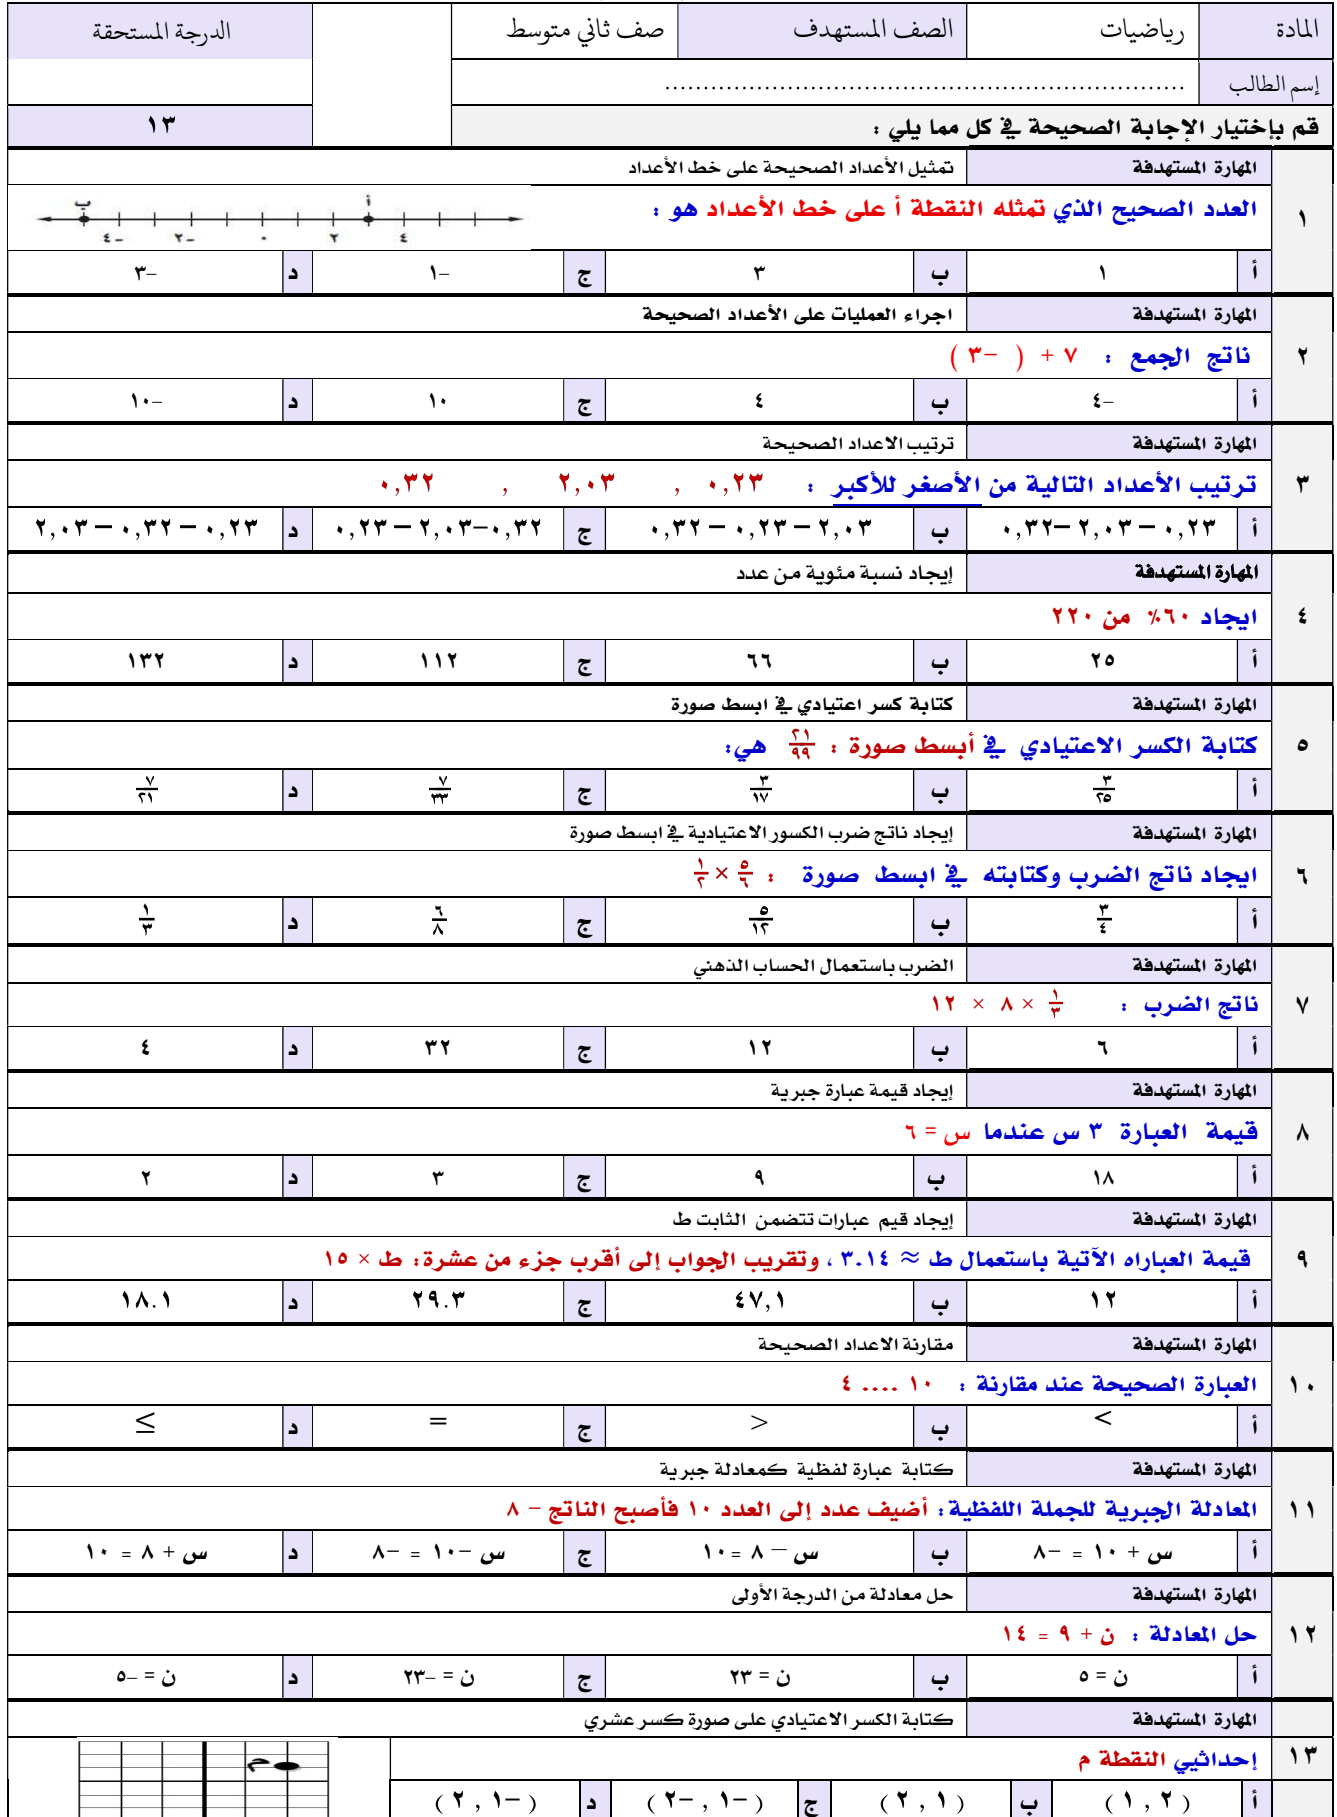 المادة رياضيات الصف المستهدف صف ثاني متوسط الدرجة المستحقة
إسم الطالب ....................................................................
قم بإختيار الإجابة الصحيحة في كل مما يلي : ١٣
المهارة المستهدفة تمثيل الأعداد الصحيحة على خط الأعداد
١ العدد الصحيح الذي تمثله النقطة أ على خط الأعداد هو :
ب أ
-٤ -٢ ٠ ٢ ٤
أ ١ ب ٣ ج -١ د -٣
المهارة المستهدفة اجراء العمليات على الأعداد الصحيحة
٢ ناتج الجمع : ٧ + ( -٣ )
أ -٤ ب ٤ ج ١٠ د -١٠
المهارة المستهدفة ترتيب الاعداد الصحيحة
٣ ترتيب الأعداد التالية من الأصغر للأكبر : ٠,٢٣ , ٢,٠٣ , ٠,٣٢
أ ٠,٢٣ – ٢,٠٣ –٠,٣٢ ب ٢,٠٣ – ٠,٢٣ – ٠,٣٢ ج ٠,٣٢–٢,٠٣ – ٠,٢٣ د ٠,٢٣ – ٠,٣٢ – ٢,٠٣
المهارة المستهدفة إيجاد نسبة مئوية من عدد
٤ ايجاد ٦٠٪ من ٢٢٠
أ ٢٥ ب ٦٦ ج ١١٢ د ١٣٢
المهارة المستهدفة كتابة كسر اعتيادي في ابسط صورة
٥ كتابة الكسر الاعتيادي في أبسط صورة : ٢١/٩٩ هي:
أ ٣/٢٥ ب ٣/١٧ ج ٧/٣٣ د ٧/٢١
المهارة المستهدفة إيجاد ناتج ضرب الكسور الاعتيادية في ابسط صورة
٦ ايجاد ناتج الضرب وكتابته في ابسط صورة : ٥/٦ × ١/٢
أ ٣/٤ ب ٥/١٢ ج ٦/٨ د ١/٣
المهارة المستهدفة الضرب باستعمال الحساب الذهني
٧ ناتج الضرب : ١/٣ × ٨ × ١٢
أ ٦ ب ١٢ ج ٣٢ د ٤
المهارة المستهدفة إيجاد قيمة عبارة جبرية
٨ قيمة العبارة ٣ س عندما س = ٦
أ ١٨ ب ٩ ج ٣ د ٢
المهارة المستهدفة إيجاد قيم عبارات تتضمن الثابت ط
٩ قيمة العباراه الآتية باستعمال ط ≈ ٣.١٤ ، وتقريب الجواب إلى أقرب جزء من عشرة: ط × ١٥
أ ١٢ ب ٤٧,١ ج ٢٩.٣ د ١٨.١
المهارة المستهدفة مقارنة الاعداد الصحيحة
١٠ العبارة الصحيحة عند مقارنة : ١٠ .... ٤
أ < ب > ج = د ≥
المهارة المستهدفة كتابة عبارة لفظية كمعادلة جبرية
١١ المعادلة الجبرية للجملة اللفظية: أضيف عدد إلى العدد ١٠ فأصبح الناتج – ٨
أ س + ١٠ = -٨ ب س – ٨ =١٠ ج س -١٠ = -٨ د س + ٨ = ١٠
المهارة المستهدفة حل معادلة من الدرجة الأولى
١٢ حل المعادلة : ن + ٩ = ١٤
أ ن = ٥ ب ن = ٢٣ ج ن = -٢٣ د ن = -٥
المهارة المستهدفة كتابة الكسر الاعتيادي على صورة كسر عشري
١٣ إحداثيي النقطة م
م
أ ( ٢ , ١ ) ب ( ١ , ٢ ) ج ( -١ , -٢ ) د ( -١ , ٢ )